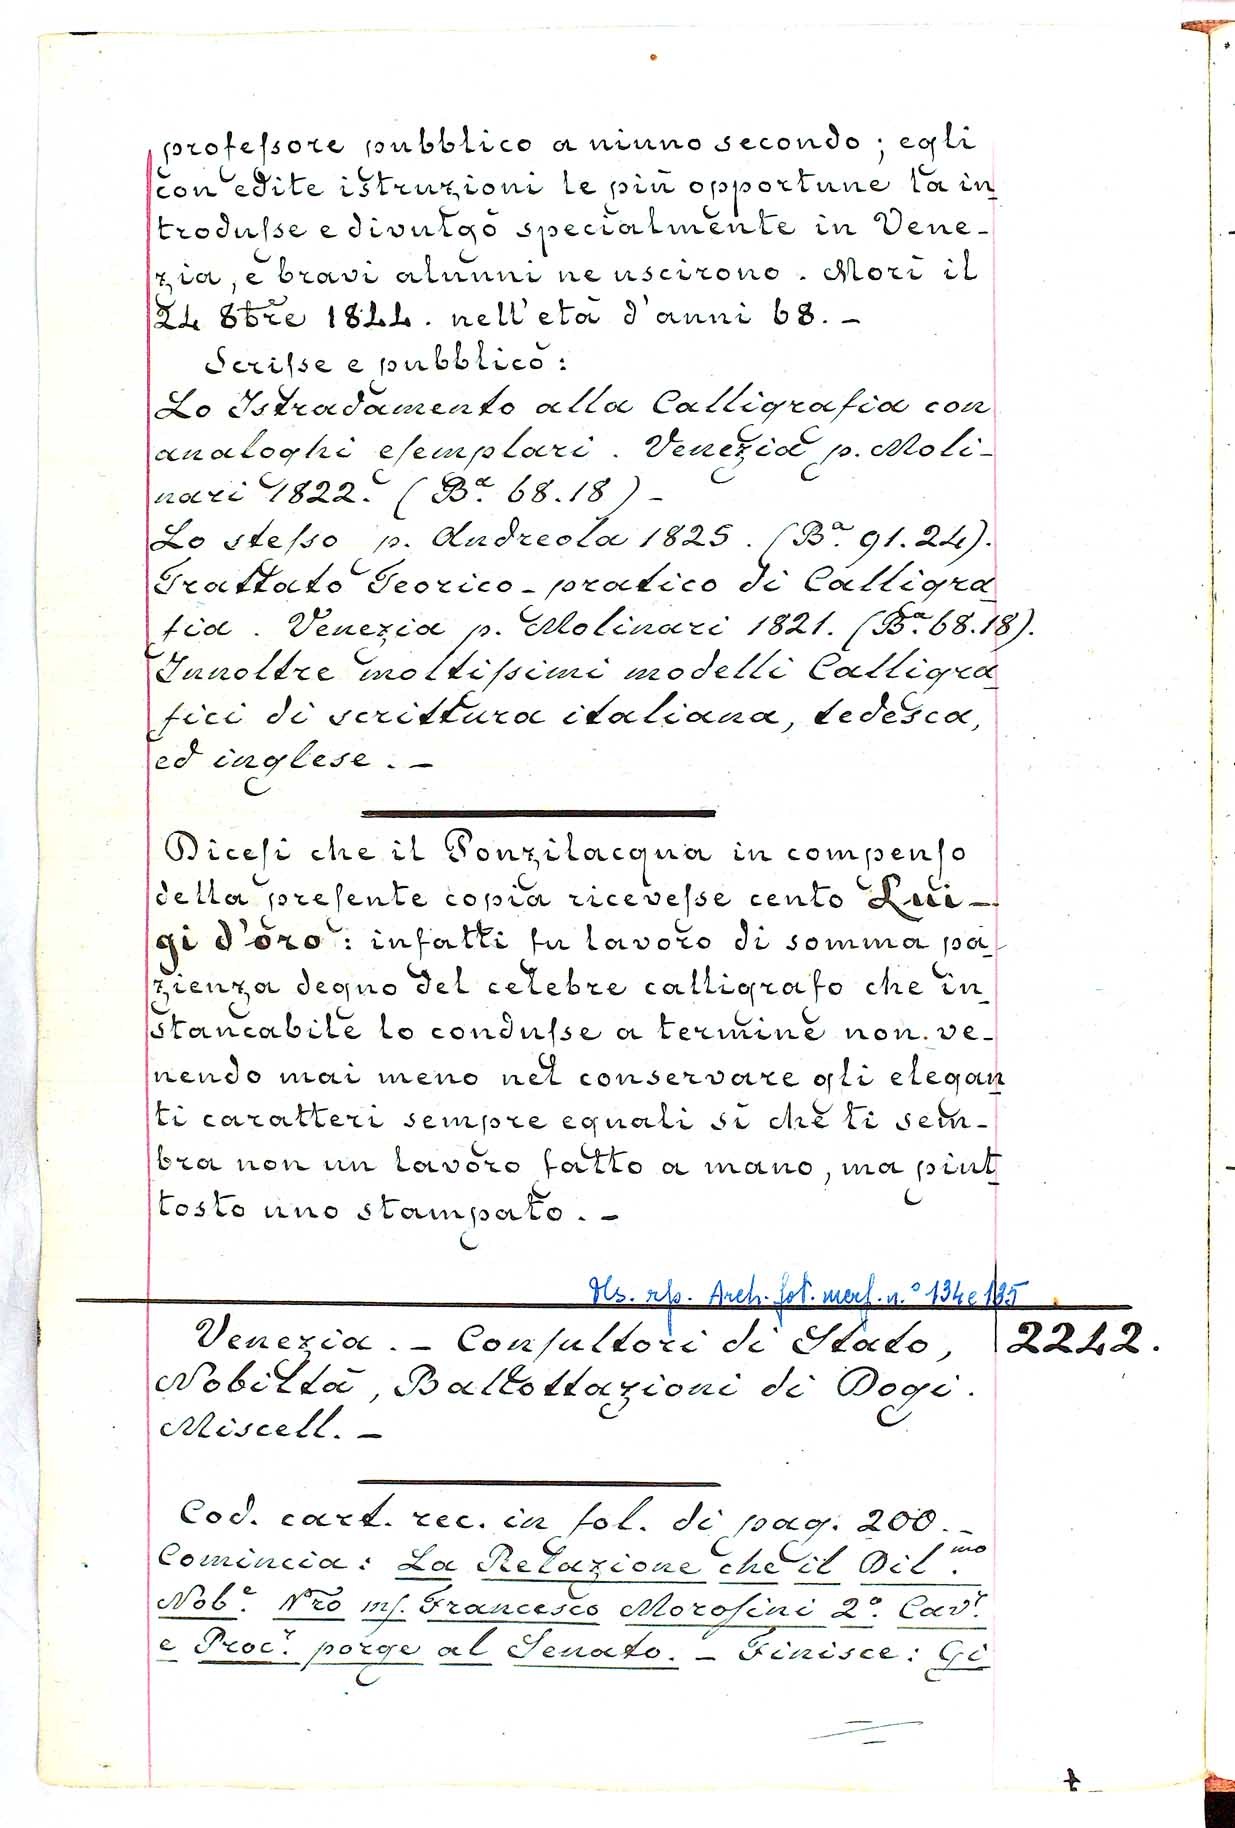 professore pubblico a niuno secondo; egli
con edite istruzioni le più opportune la in
trodusse e divulgò specialmente in Vene-
zia, e bravi alunni ne uscirono. Morì il
24 8bre 1844. nell'età d'anni 68. -
Scrisse e pubblicò:
Lo Istradamento alla Calligrafia con
analoghi esemplari. Venezia p. Moli-
nari 1822. (Ba. 68.18) -
Lo stesso p. Andreola 1825. (Ba. 91.24).
Trattato Teorico-pratico di Calligra
fia. Venezia p. Molinari 1821. (Ba. 68.18).
Innoltre moltissimi modelli Calligra
fici di scrittura italiana, tedesca,
ed inglese. -
Dicesi che il Ponzilacqua in compenso
della presente copia ricevesse cento Lui-
gi d'oro: infatti fu lavoro di somma pa
zienza degno del celebre calligrafo che in
stancabile lo condusse a termine non ve-
nendo mai meno nel conservare gli elegan
ti caratteri sempre eguali sì che ti sem-
bra non un lavoro fatto a mano, ma piut
tosto uno stampato. -
Ms. rip. Arch. fot. n.° 134 e 135
Venezia. - Consultori di Stato, 2242.
Nobiltà, Ballottazioni di Dogi.
Miscell. -
Cod. cart. rec. in fol. di pag. 200. -
Comincia: La Relazione che il Dil.mo
Nobe. Nro ms. Francesco Morosini 2°. Cavr.
e Procr. porge al Senato. - Finisce: Gi